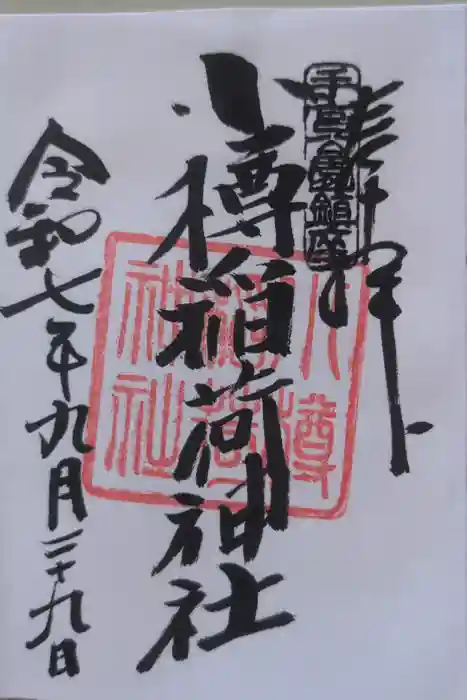 奉拝
手宮 鎮座
小樽稲荷神社
小樽
稲荷
神社
令和七年九月二十九日